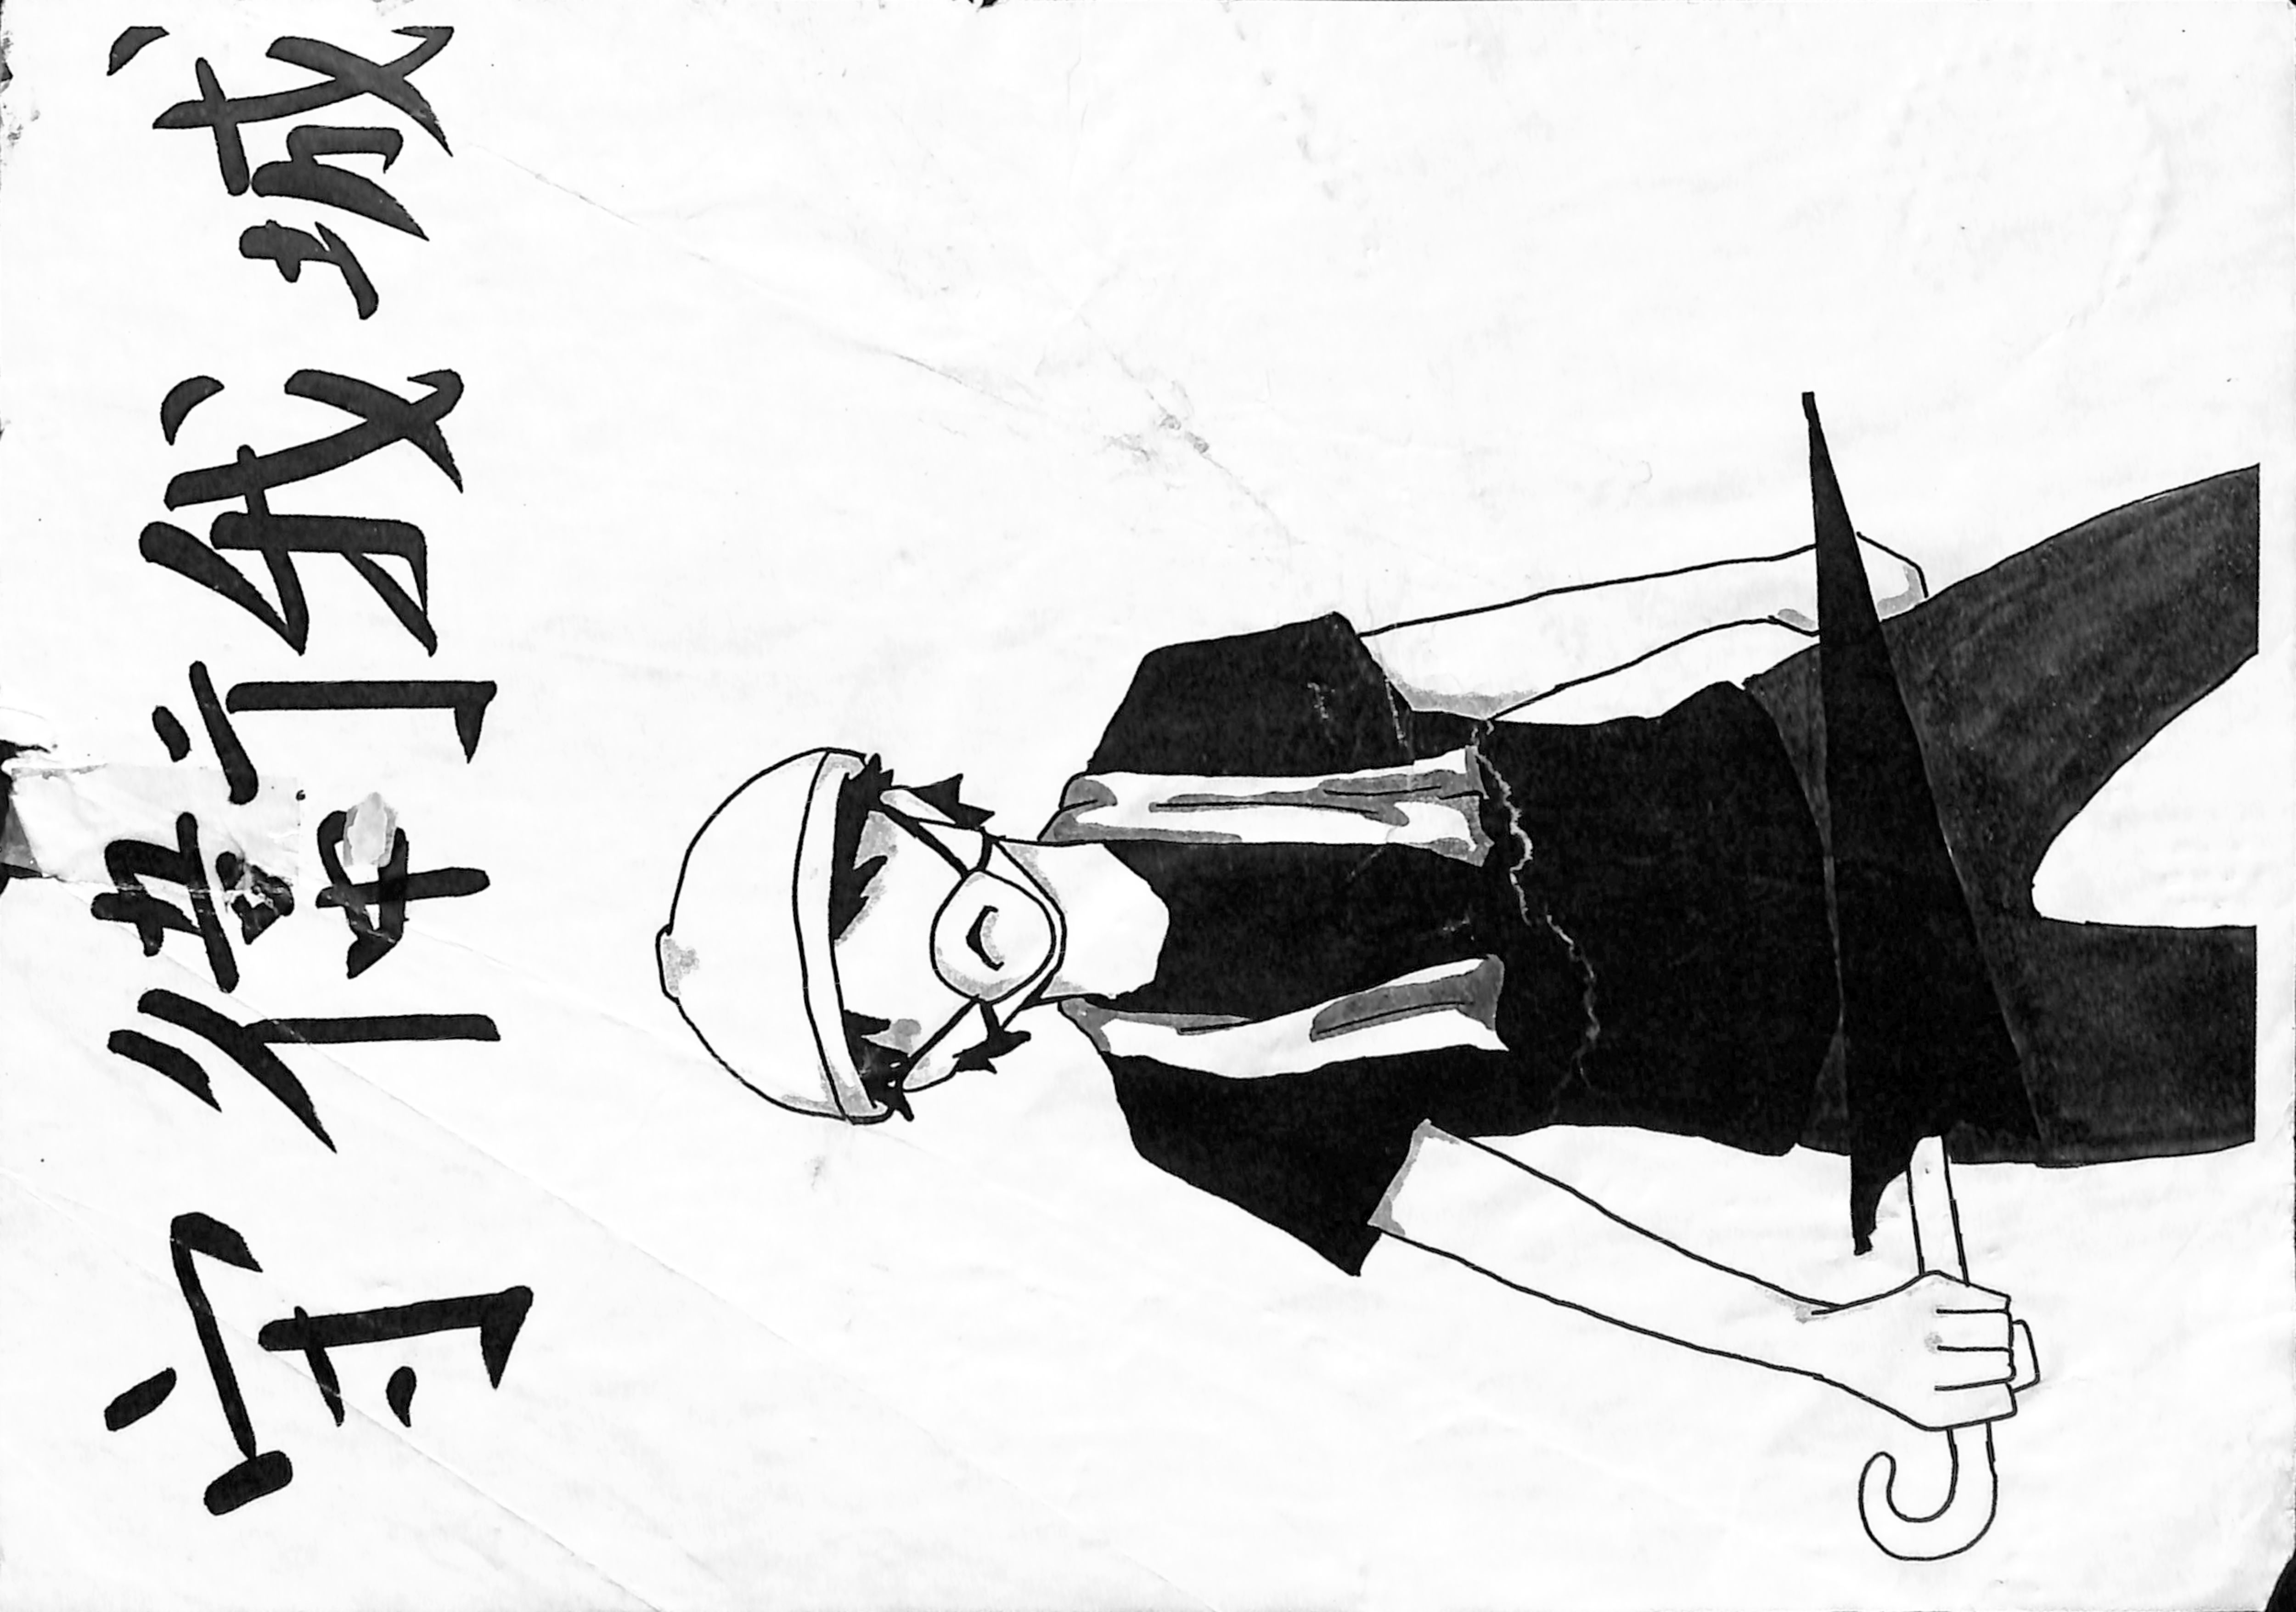 守衛我城